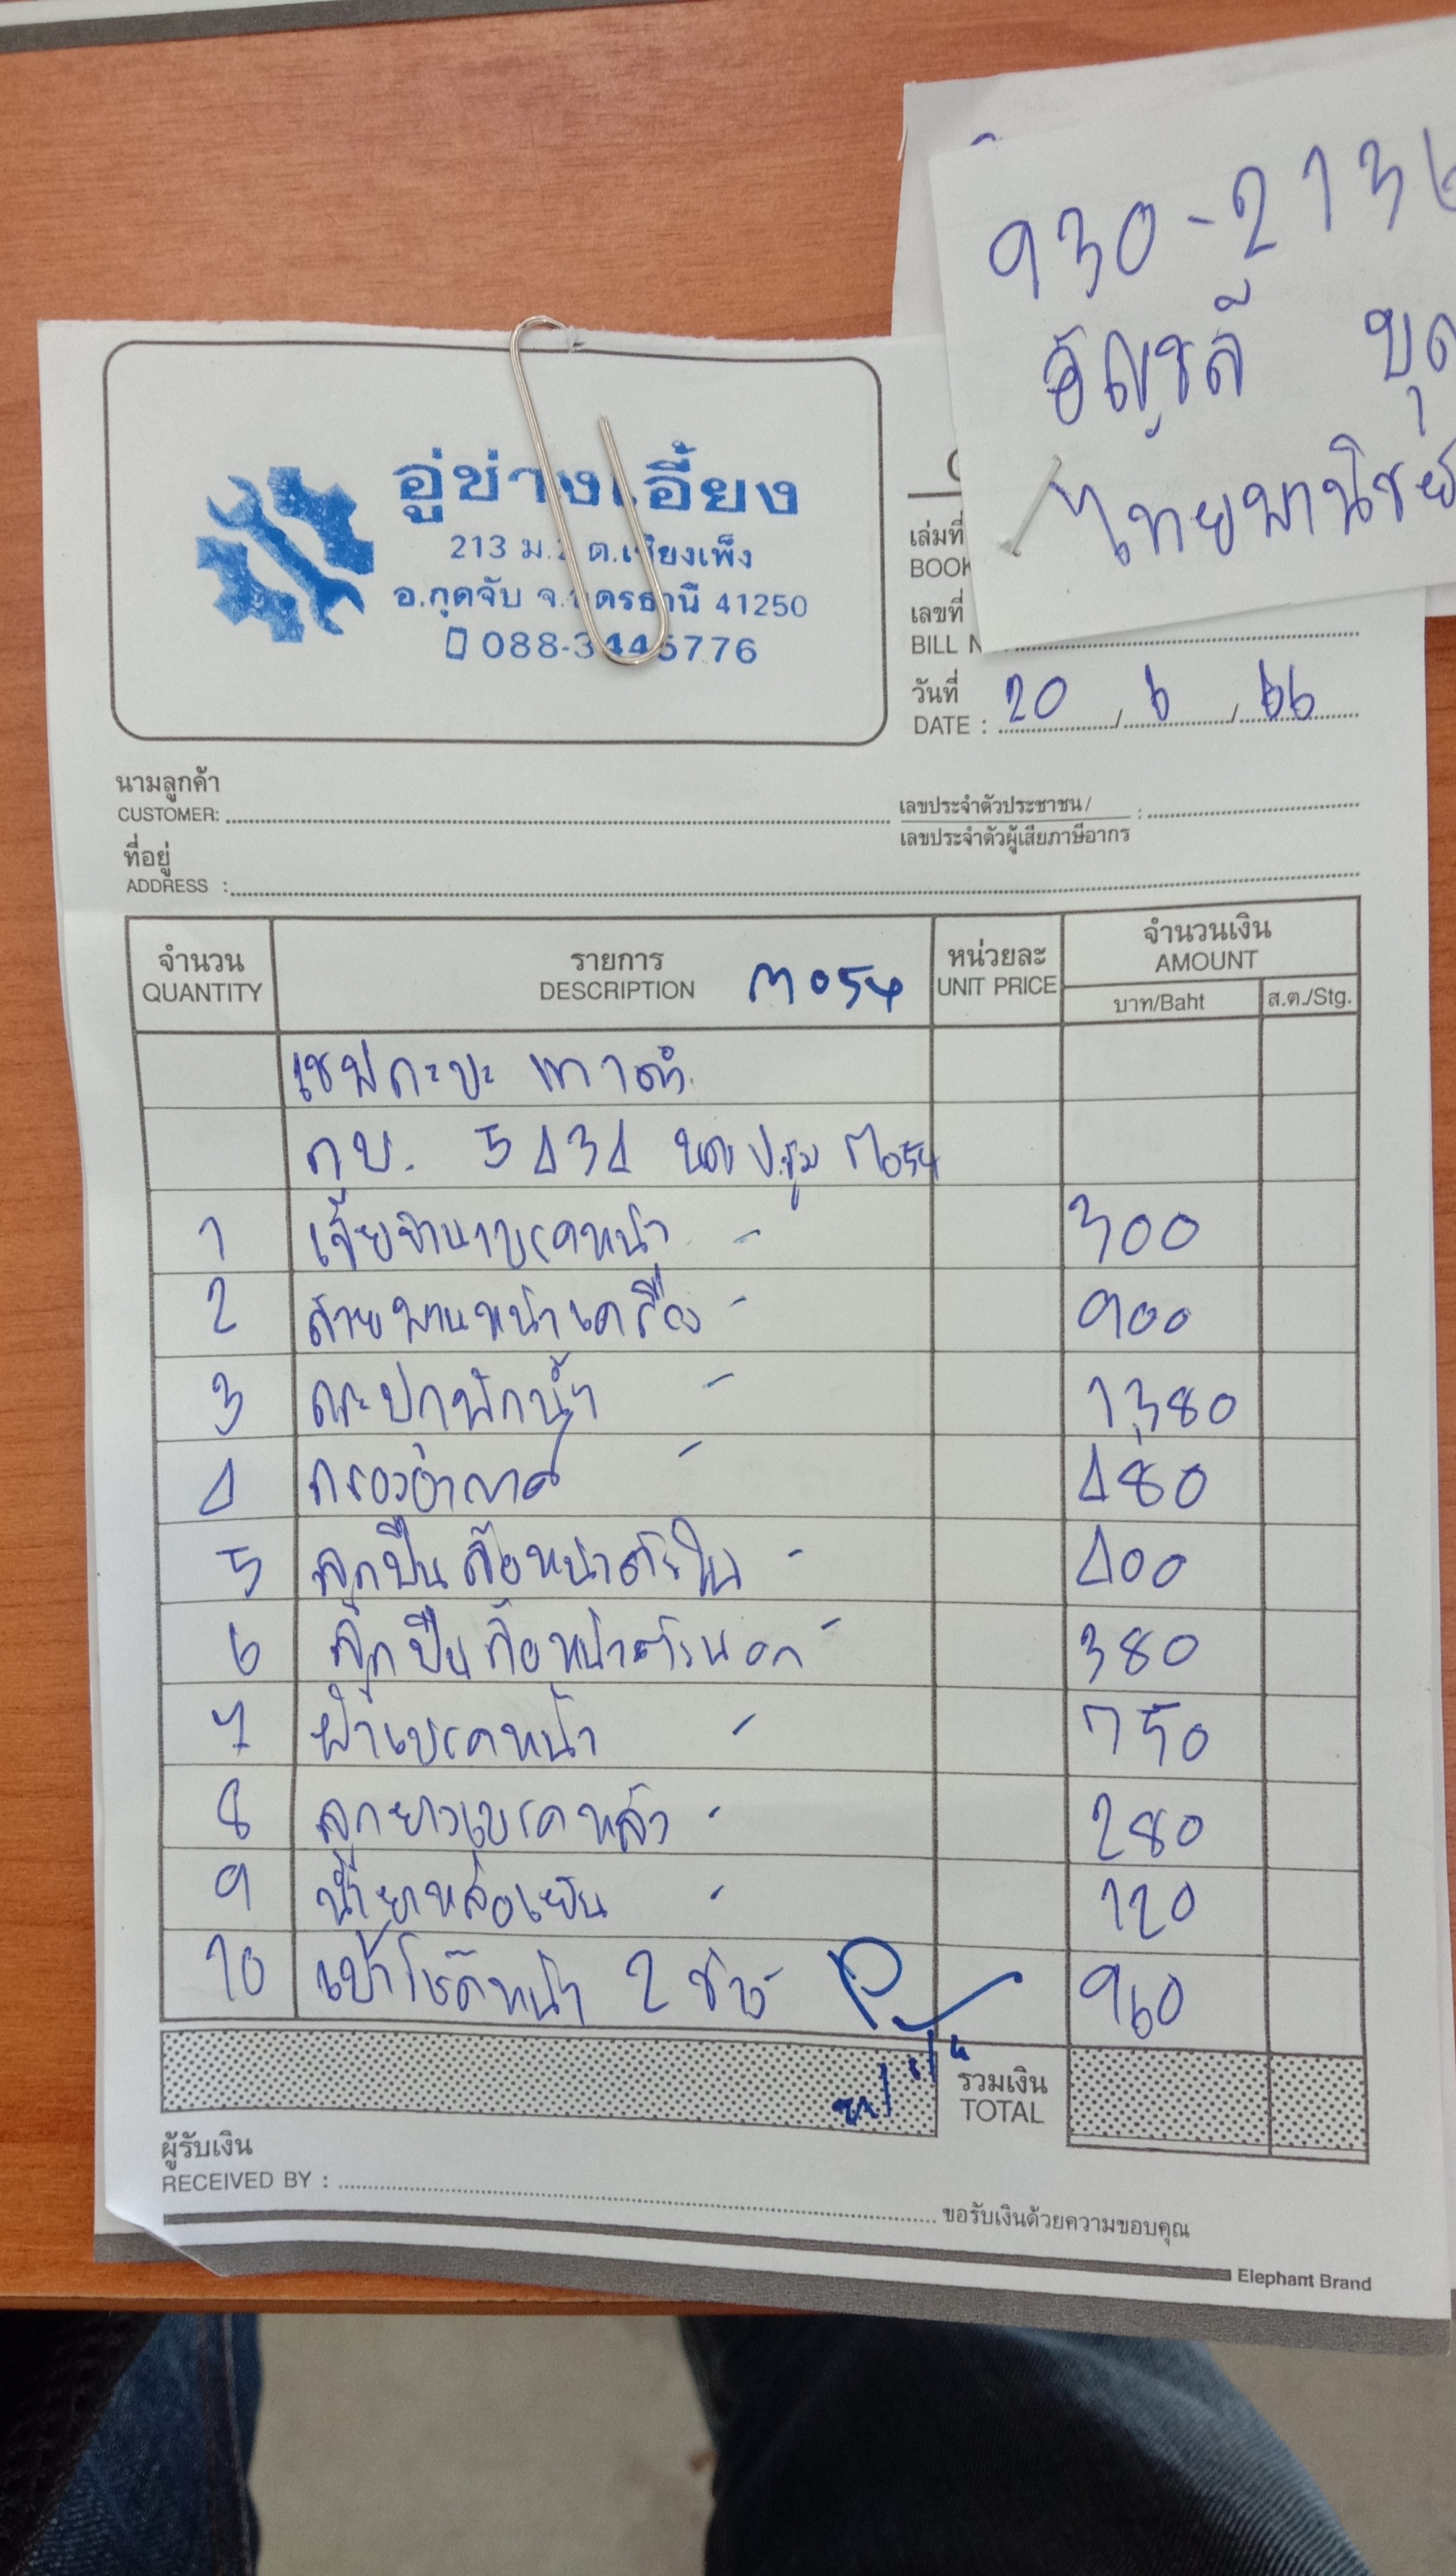 930-2136
อัญชลี บุด
ไทยพานิชย์
อู่ช่างเอี้ยง
213 ม.2 ต.เชียงเพ็ง
อ.กุดจับ จ.อุดรธานี 41250
088-3445776
เล่มที่
BOOK
เลขที่
BILL N
วันที่
DATE : 20 / 6 / 66
นามลูกค้า
CUSTOMER:
เลขประจำตัวประชาชน/
เลขประจำตัวผู้เสียภาษีอากร :
ที่อยู่
ADDRESS :
จำนวน รายการ หน่วยละ จำนวนเงิน
QUANTITY DESCRIPTION M054 UNIT PRICE AMOUNT
บาท/Baht ส.ต./Stg.
เชฟกะบะ เทาดำ
กบ. 5434 M054
1 เจียจานเบรคหน้า 300
2 สายพานหน้าเครื่อง 900
3 กระปุกพักน้ำ 1,380
4 กรองอากาศ 480
5 ลูกปืนล้อหน้าตัวใน 400
6 ลูกปืนล้อหน้าตัวนอก 380
7 ผ้าเบรคหน้า 750
8 ลูกยางเบรคหลัง 280
9 น้ำยาหล่อเย็น 120
10 เบ้าโช๊คหน้า 2 ข้าง 960
รวมเงิน
TOTAL
ผู้รับเงิน
RECEIVED BY :
ขอรับเงินด้วยความขอบคุณ
Elephant Brand